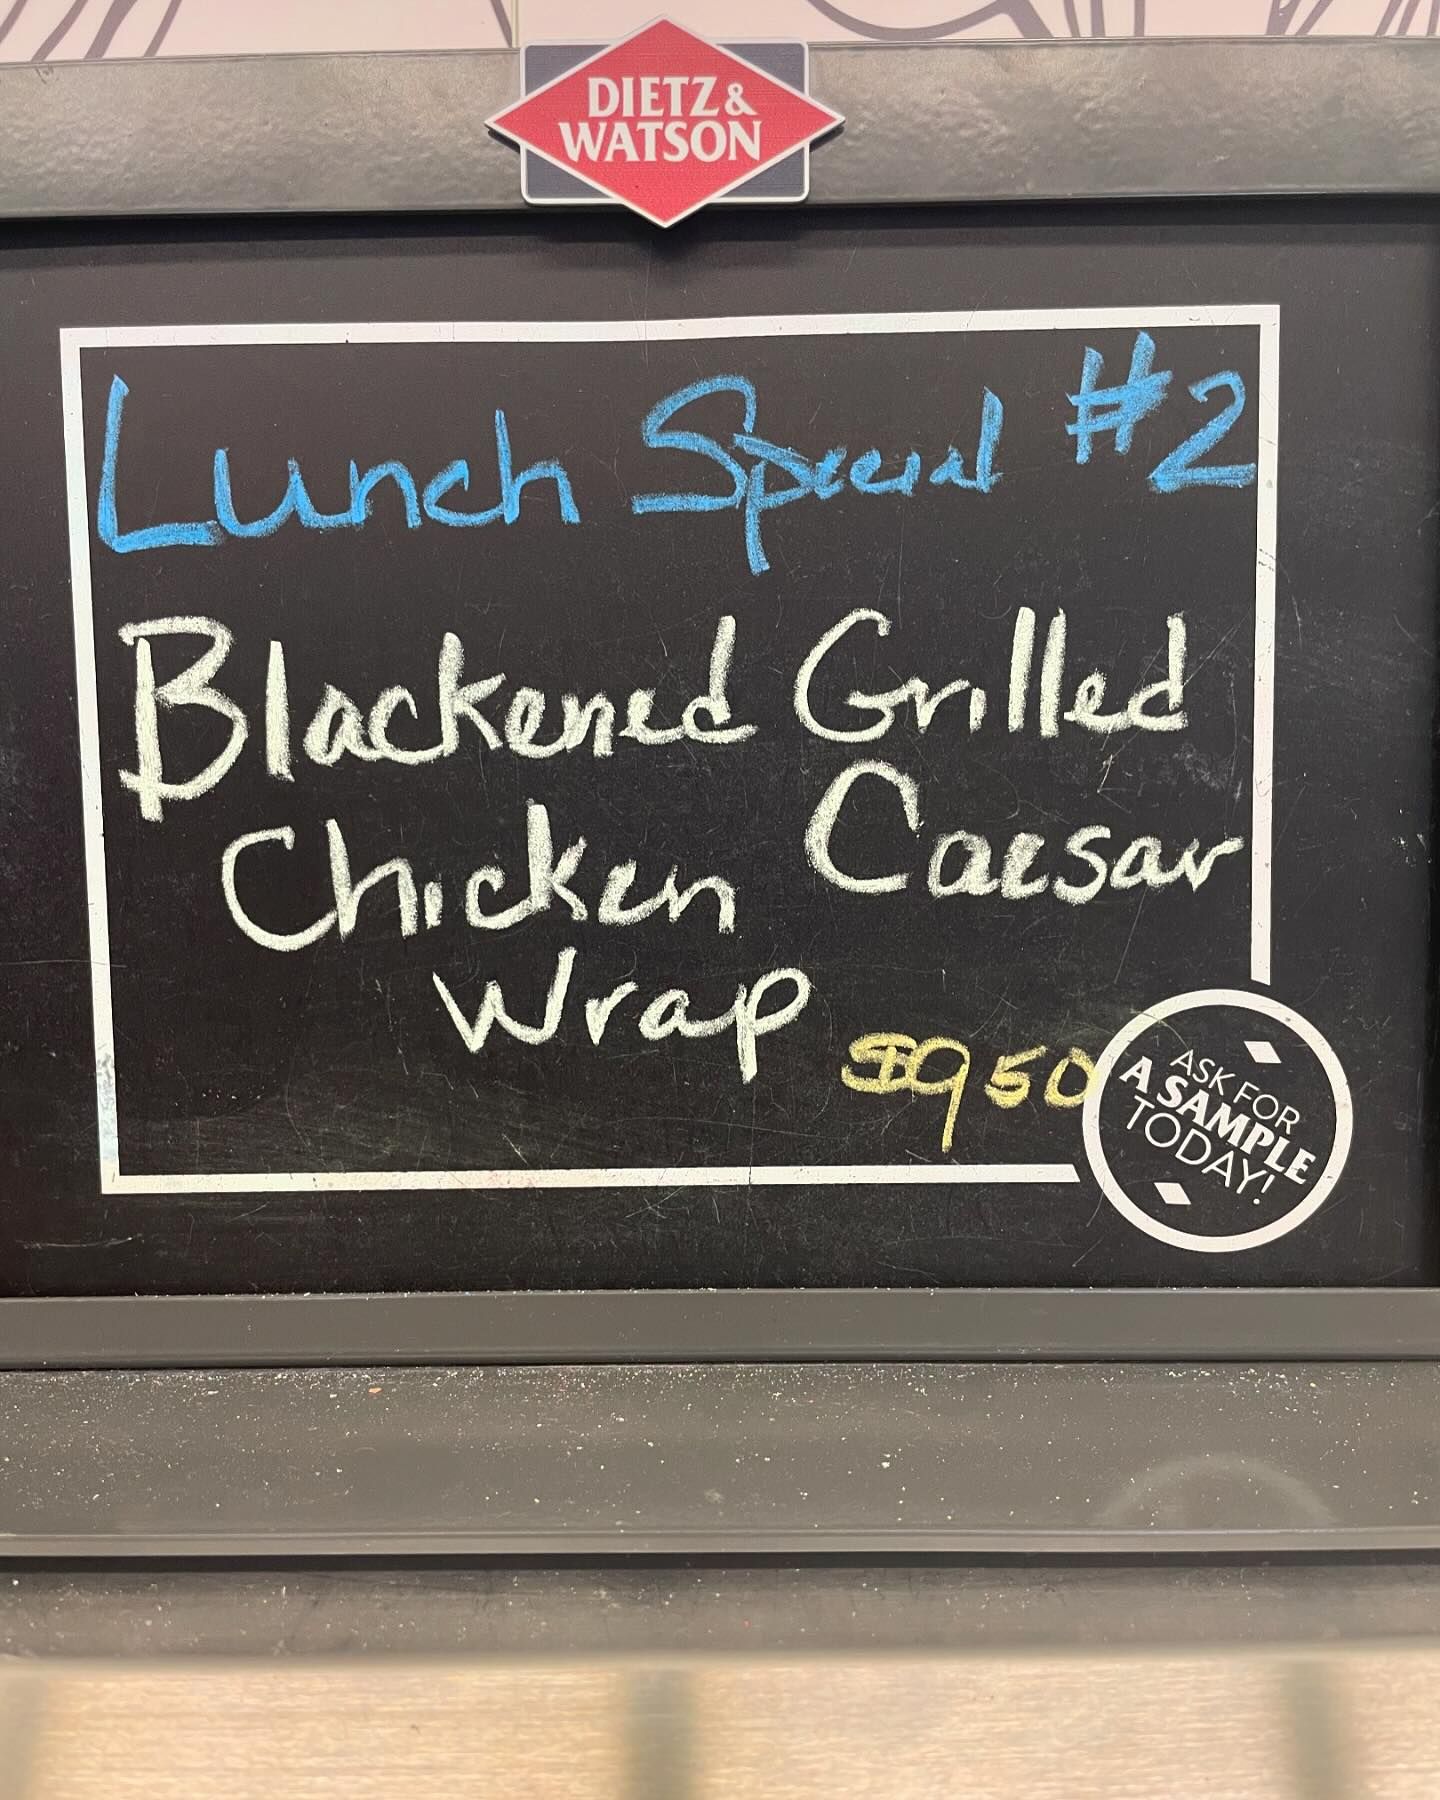 DIETZ &
WATSON
Lunch Special #2
Blackened Grilled
Chicken Caesar
Wrap
$9 50
ASK FOR
A SAMPLE
TODAY!